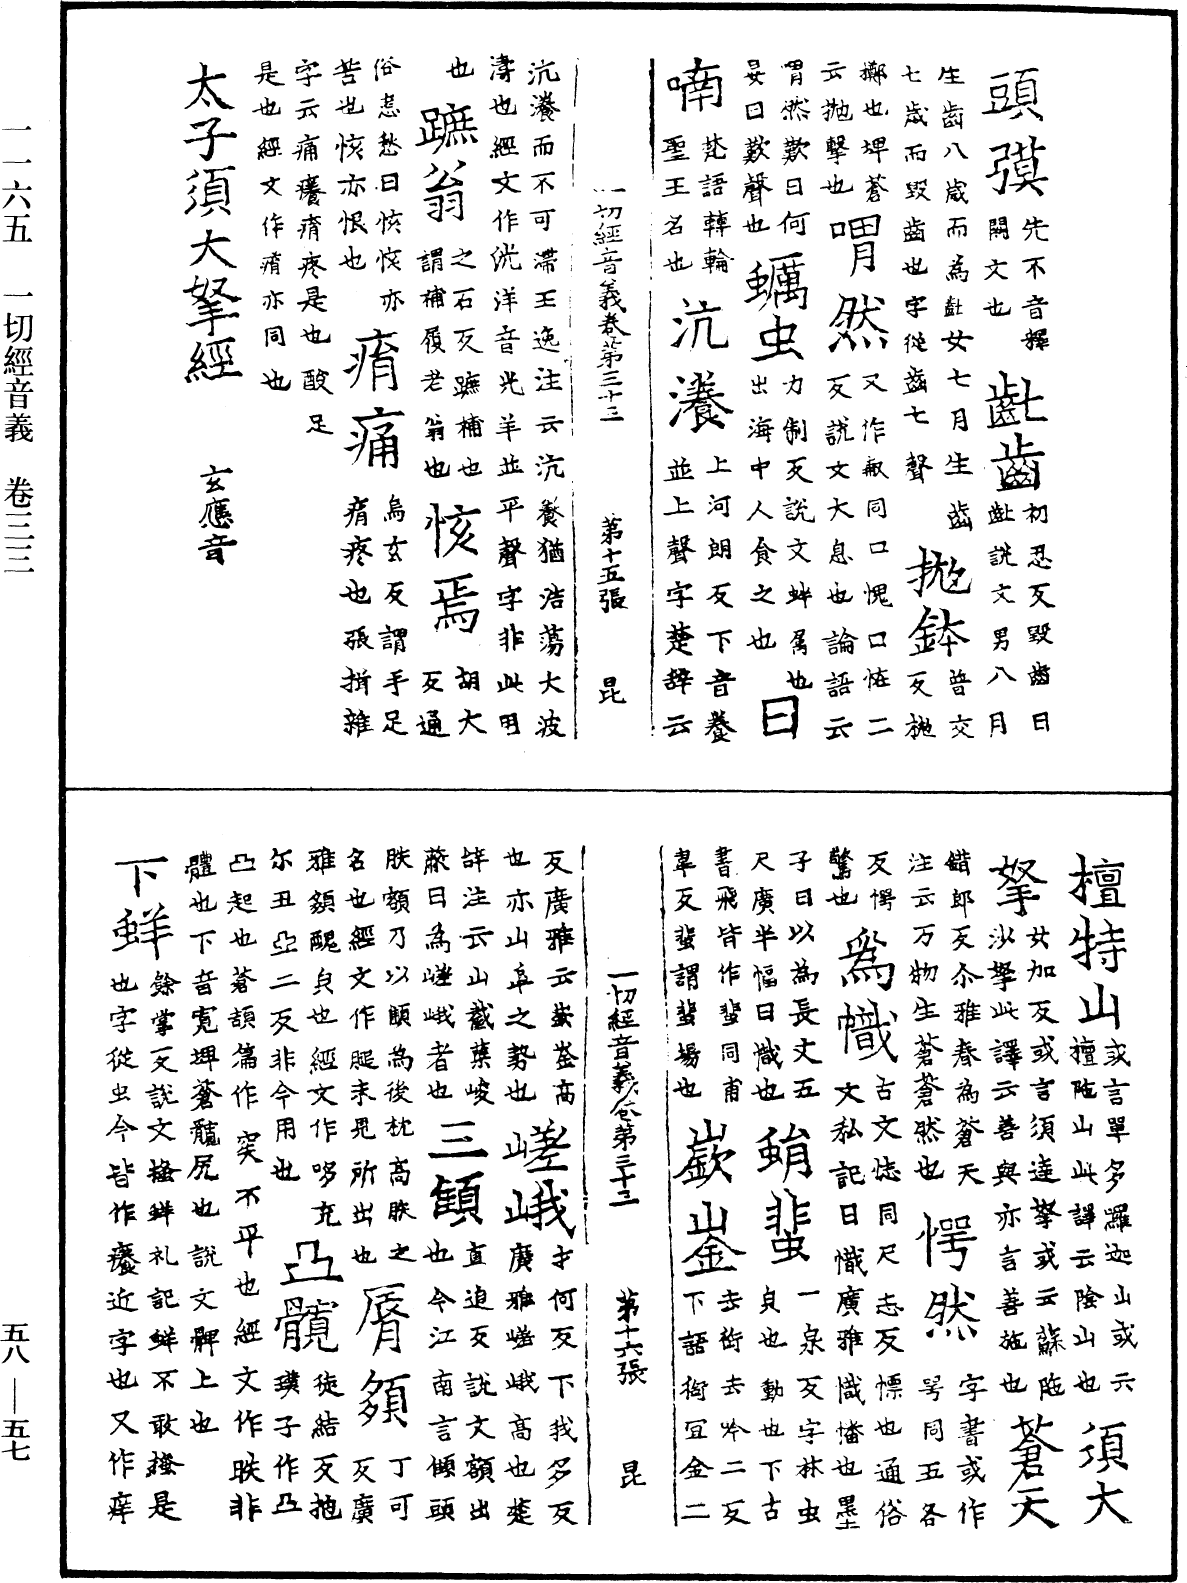 頭㩧先不音擇闕文也齔齒初忍反毀齒曰齔說文男八月
生齒八歲而為齔女七月生齒
七歲而毀齒也字從齒七聲拋鉢普交反拋
擲也埤蒼云拋擊也喟然又作嘳同口愧口怪二反說文大息也論語云
喟然歎曰何晏曰歎聲也蠣虫力制反說文蚌属也出海中人食之也曰
喃梵語轉輪聖王名也沆瀁上河朗反下音養並上聲字楚辞云
一切經音義卷第三十三 第十五張 昆
沆瀁而不可滯王逸注云沆瀁猶浩蕩大波
濤也經文作洸洋音光羊並平聲字非此用
也蹠翁之石反蹠補也謂補履老翁也恢焉胡大反通
俗志愁曰恢恢亦苦也恢亦恨也痟痛烏玄反謂手足痟疼也張揖雜
字云痛癢痟疼是也酸足
是也經文作痟亦同也
太子須大拏經 玄應音
檀特山或言單多羅迦山或云檀陁山此譯云陰山也須大
拏女加反或言須達拏或云蘇陁沙拏此譯云善與亦言善施也蒼天
錯郎反尒雅春為蒼天注云万物生蒼蒼然也愕然字書或作咢同五各
反愕驚也為幟古文恜同尺志反幖也通俗文私記曰幟廣雅幟幡也墨
子曰以為長丈五尺廣半幅曰幟也蛸蜚一泉反字林虫皃也動也下古
書飛皆作蜚同甫韋反蜚謂蜚揚也嶔崟去銜去吟二反下語銜宜金二
一切經音義卷第三十三 第十六張 昆
反廣雅云嶔崟高也亦山阜之勢也嵯峨才何反下我多反廣雅嵯峨高也楚
辞注云山巀㠔峻蔽日為嵯峨者也三顀直追反說文額出也今江南言傾頭
胅額乃以顀為後枕高胅之名也經文作膇未見所出也脣䫂丁可反廣
雅䫂醜皃也經文作哆充尒丑亞二反非今用也凸髖徒結反抱璞子作凸
凸起也蒼頡篇作突不平也經文作胅非
體也下音寬埤蒼髖尻也說文髀上也
下蛘餘掌反說文搔蛘礼記蛘不敢搔是也字從虫今皆作癢近字也又作痒
一一六五 一切經音義 卷三三
五八—五七